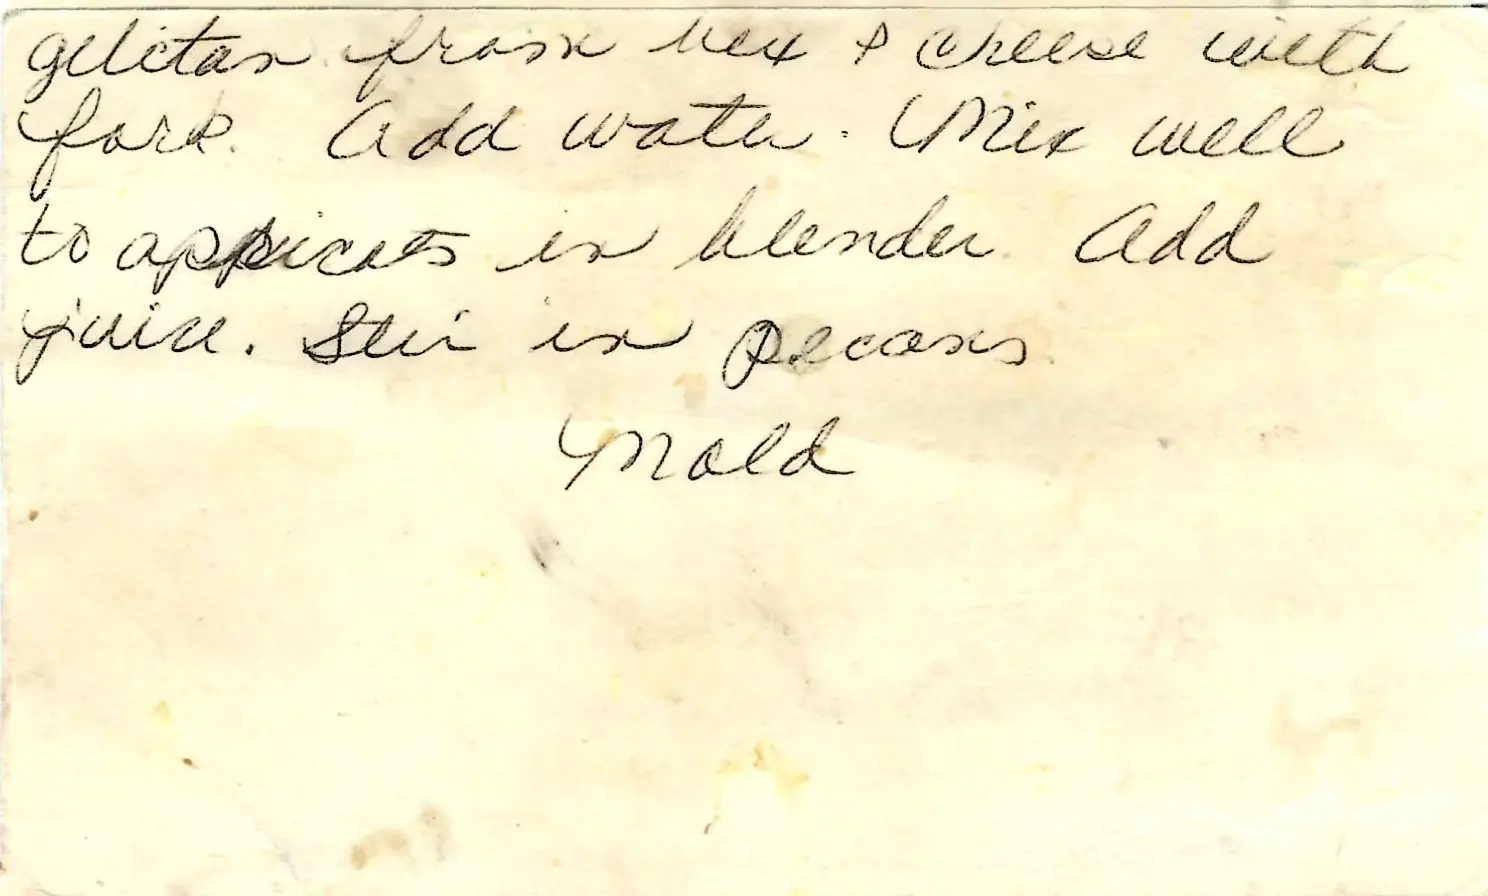 gelitan from box & cheese with
fork. Add water. Mix well
to appricots in blender. Add
juice. Stir in pecans
Mold